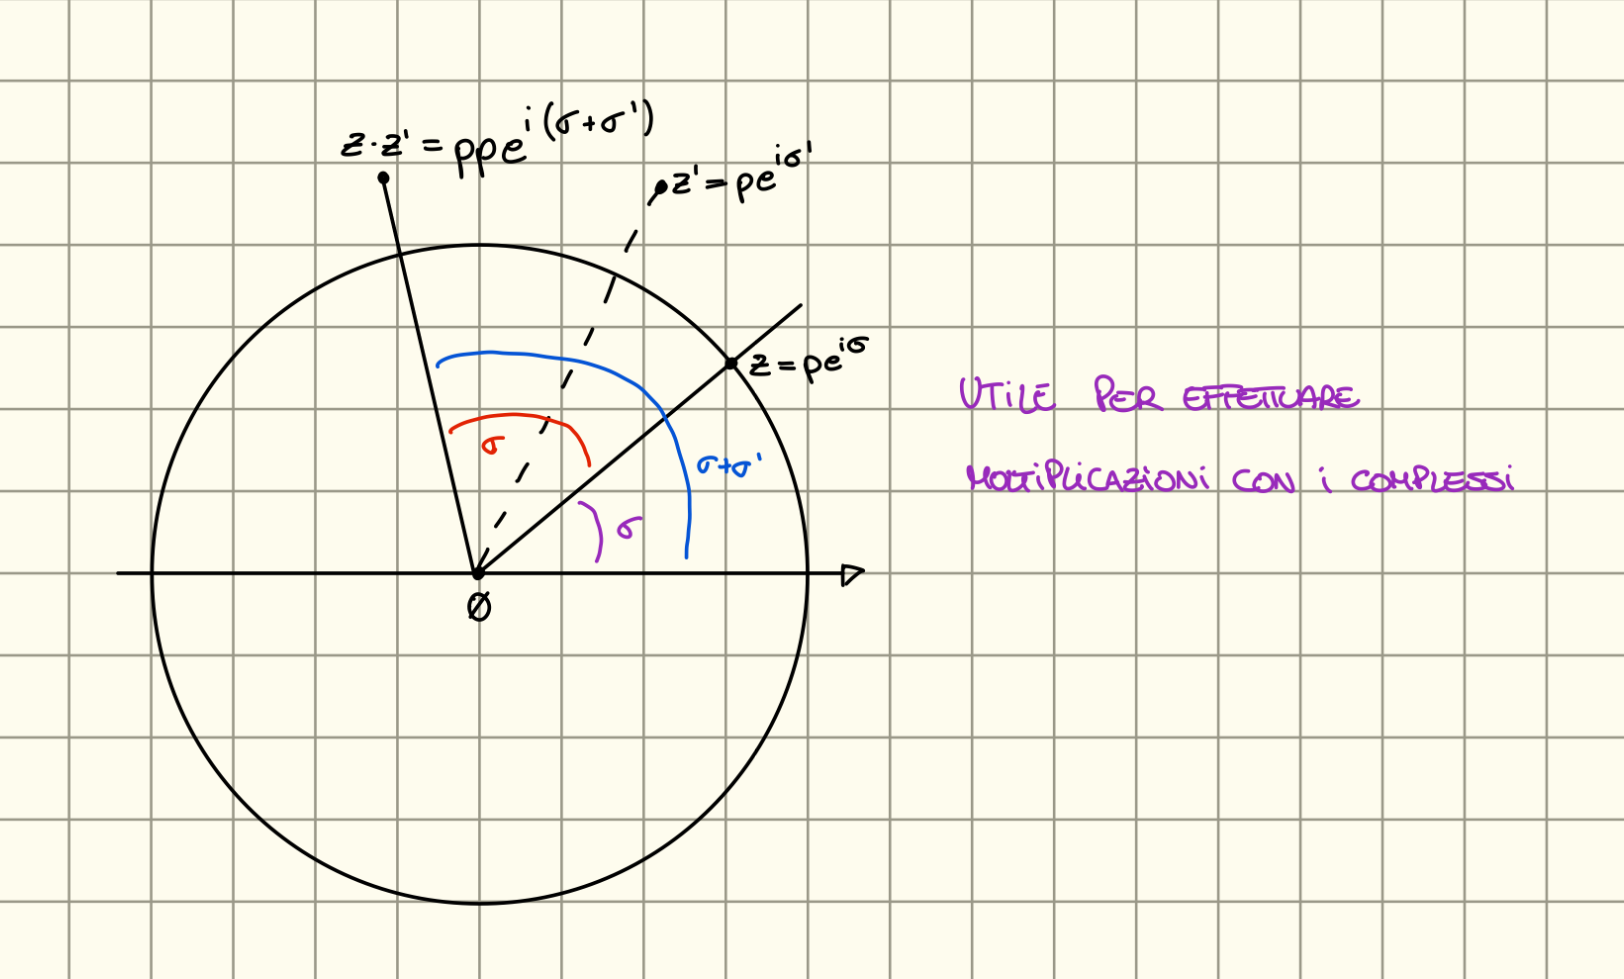 z·z' = ppe^i(σ+σ')
z' = pe^iσ'
z = pe^iσ
σ
σ+σ'
σ
Ø
UTILE PER EFFETTUARE
MOLTIPLICAZIONI CON i COMPLESSI